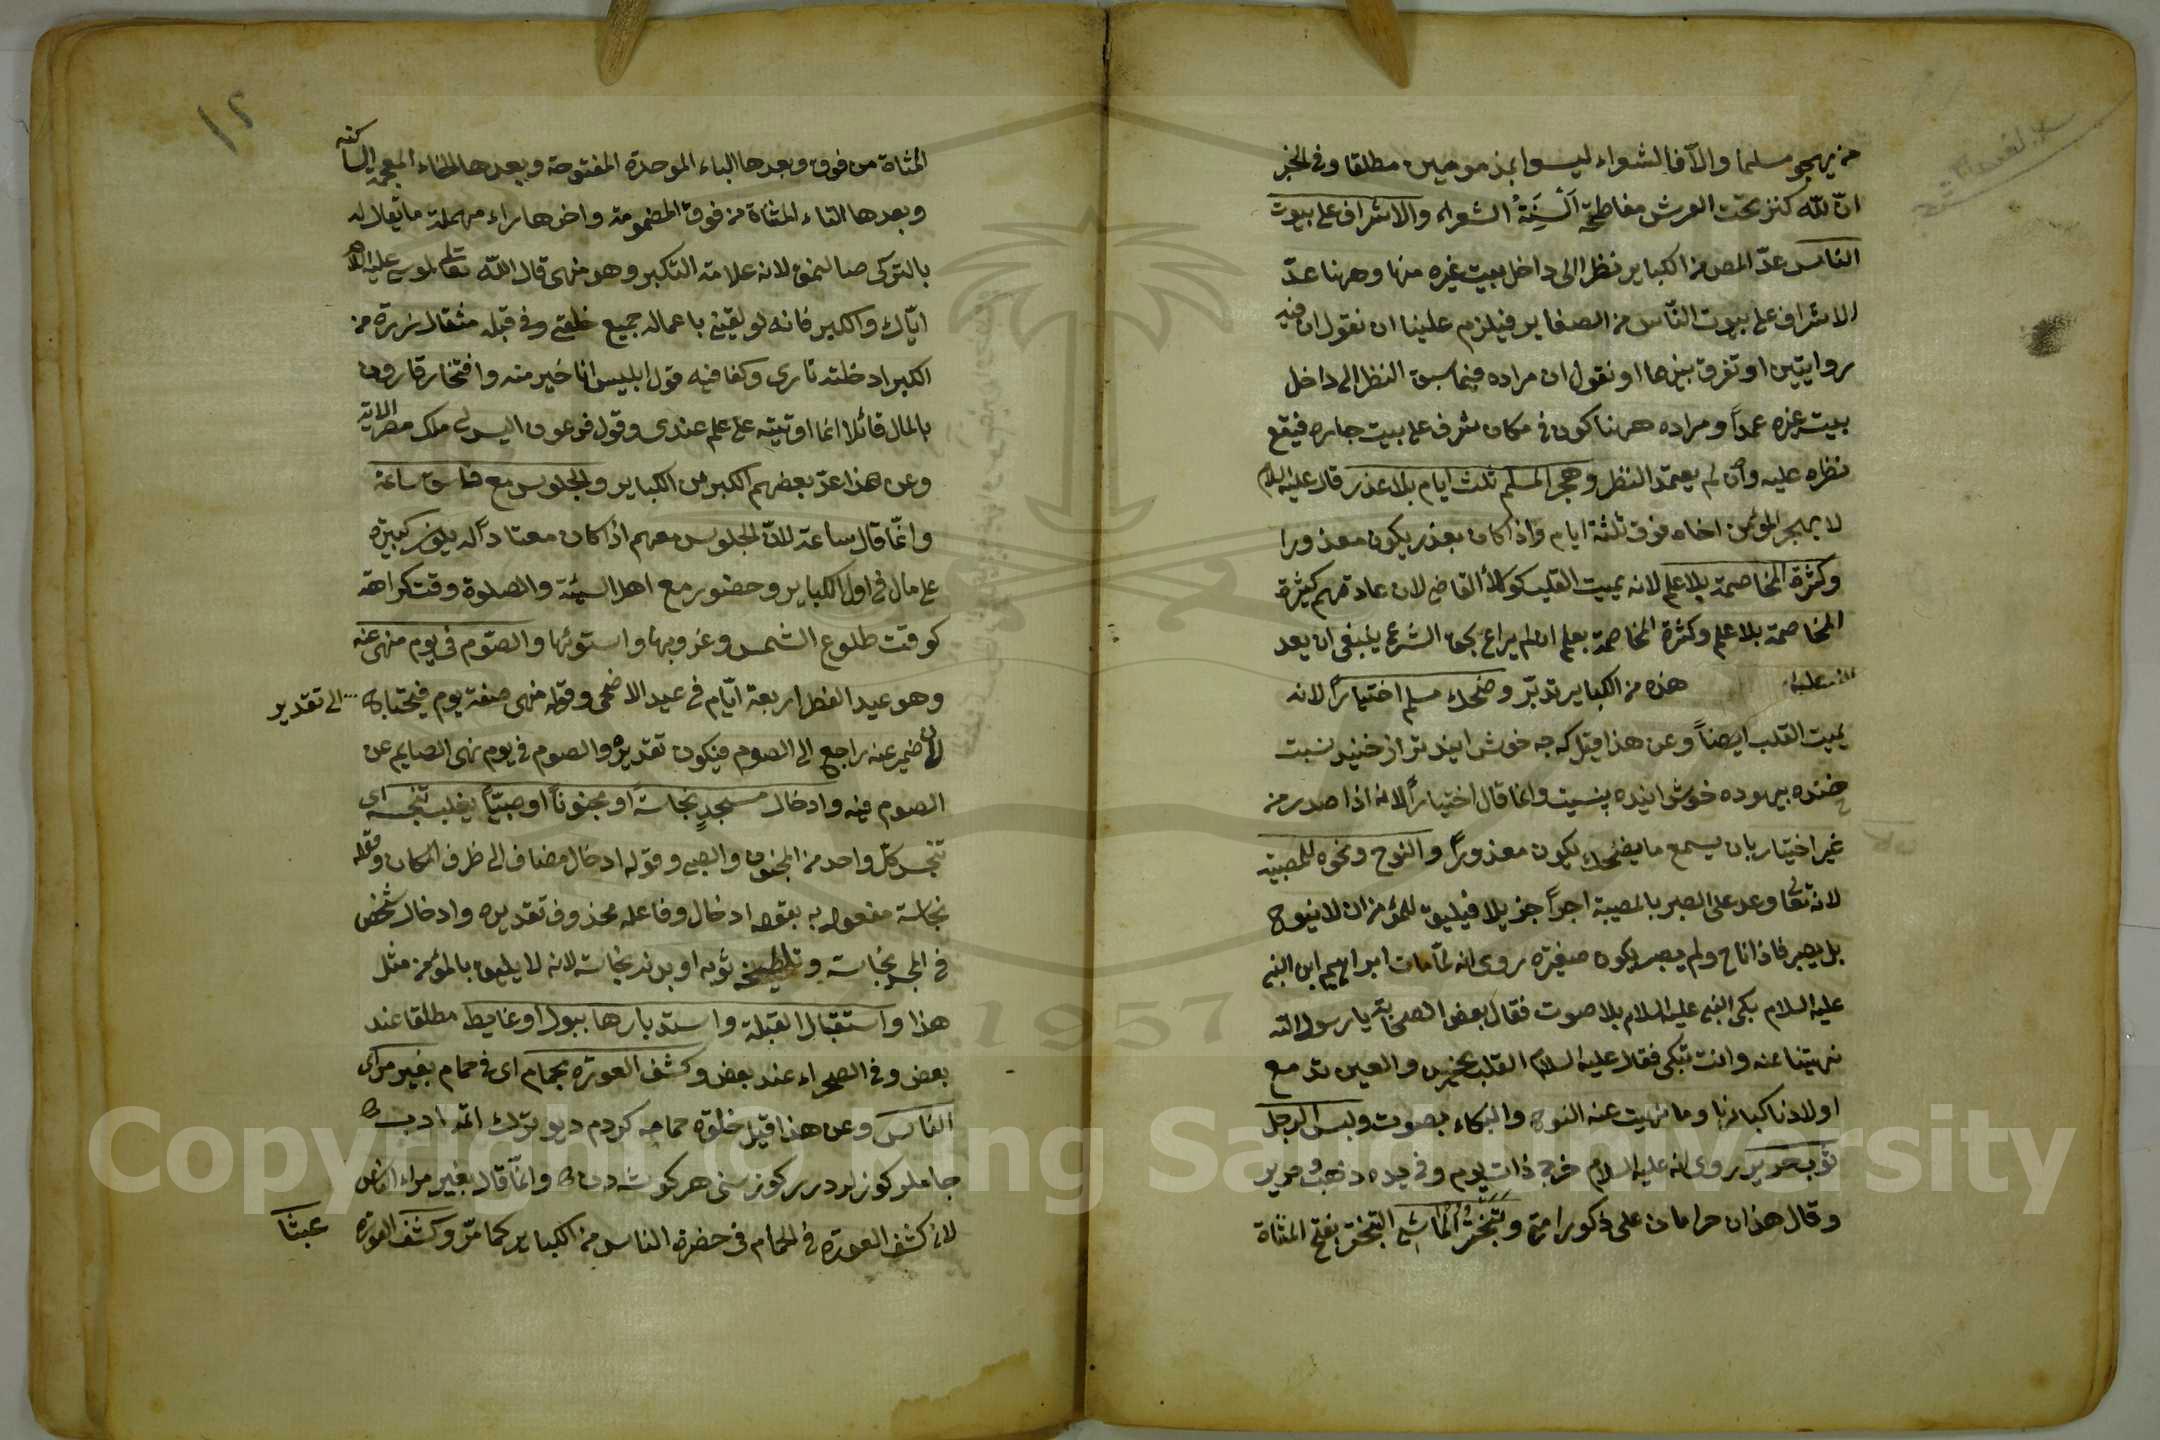 من يهجو مسلما والآفا لشعراء ليسوا بمذمومين مطلقا وفي الخبر
ان لله كنز تحت العرش مفاطحة ألسنة الشعراء والاشراف على بيوت
الناس عدّ المص من الكباير نظرا الى داخل بيت غيره منها وههنا عدّ
الاشراف على بيوت النّاس من الصغاير فيلزم علينا ان نقول ان فيه
روايتين او تفرق بينهما او نقول ان مراده فيما سبق النظر الى داخل
بيت غيره عمداً ومراده ههنا كون في مكان مشرف على بيت جاره فيقع
نظره عليه وان لم يعتمد النظر وهجر المسلم ثلث ايام بلا عذر قال عليه السلام
لا يهجر المؤمن اخاه فوق ثلثة ايام واذا كان بعذر يكون معذورا
وكثرة المخاصمة بلا علم لانه يميت القلب كوكلاء القاضي لان عادتهم كثرة
المخاصمة بلا علم وكثرة المخاصمة بعلم ان لم يراع بحق الشرع ينبغى ان يعد
هذه من الكباير تدبّر وضحك مسلم اختياراً لانه
يميت القلب ايضاً وعن هذا قيل كه چه خوش ايند تر از خنيد نسبت
خنده بيهوده خوش اينده نيست وانما قال اختياراً لانه اذا صدر من
غير اختيار بان يسمع ما يضحك يكون معذوراً والنوح ونحوه للمصيبة
لانه تعالى وعد على الصبر بالمصيبة اجراً جزيلا فيليق للمؤمن ان لا ينوح
بل يصبر فاذا ناح ولم يصبر يكون صغيرة روى انه لمّا مات ابراهيم ابن النبي
عليه السلام بكى النبي عليه السلام بلا صوت فقال بعض الصحابة يا رسول الله
نهيتنا عنه وانت تبكى فقال عليه السلام القلب يحزن والعين تدمع
اولادنا كبادنا وما نهيت عنه النوح والبكاء بصوت ولبس الرجل
ثوب حرير روى انه عليه السلام خرج ذات يوم وفي يده ذهب وحرير
وقال هذان حرامان على ذكور امتي وتبختر الماشي التبختر بفتح المثناة
١٢
المثناة من فوق وبعدها الباء الموحدة المفتوحة وبعدها الخاء المعجمة الساكنة
وبعدها التاء المثناة من فوق المضمومة واخرها راء مهملة ما يقال له
بالتركى صالنمق لانه علامة التكبر وهو منهى قال الله تعالى لموسى عليه السلام
ايّاك والكبر فانه لو لقيني باعماله جميع خلقي وفي قبله مثقال زرة من
الكبر ادخلته نارى وكفا فيه قول ابليس انا خير منه وافتخار قارون
بالمال قائلا انما اوتيته على علم عندى وقول فرعون اليس لي ملك مصر الاية
وعن هذا عدّ بعضهم الكبر من الكباير والجلوس مع فاسق ساعة
وانّما قال ساعة لانّ الجلوس معهم اذا كان معتاداً له يكون كبيرة
على مال في اول الكباير وحضور مع اهل السيئة والصلوة وقت كراهة
كوقت طلوع الشمس وغروبها واستوئها والصّوم في يوم منهى عنه
وهو عيد الفطر اربعة ايّام في عيد الاضحى وقوله منهى صفة يوم فيحتاج
الى تقدير
لان ضمير عنه راجع الى الصوم فيكون تقديره والصوم في يوم نهى الصايم عن
الصوم فيه وادخال مسجدٍ نجاسةً او مجنوناً او صبيّاً يغلب تنجسه اى
تنجس كلّ واحد من المجنون والصبى وقوله ادخال مضاف الى ظرف المكان وقوله
نجاسة مفعول به بقوله ادخال وفاعله محذوف تقديره وادخال شخص
في المسجد نجاسة وتلطيخ ثوبه او بدنه نجاسة لانه لا يليق بالمؤمن مثل
هذا واستقبال القبلة واستدبارها ببول او غايط مطلقا عند
بعض وفي الصحراء عند بعض وكشف العورة بحمام اى في حمام بغير مراى
الناس وعن هذا قيل خلقه حمامه كردم ديو ترك اتمه ادب
جاملو كوزلردر كوز سنى هر كوشه دن وانّما قال بغير مراء الناس
لانه كشف العورة في الحمام في حضرة الناس من الكباير كما مرّ وكشف العورة
عبثا
Copyright © King Saud University
1957